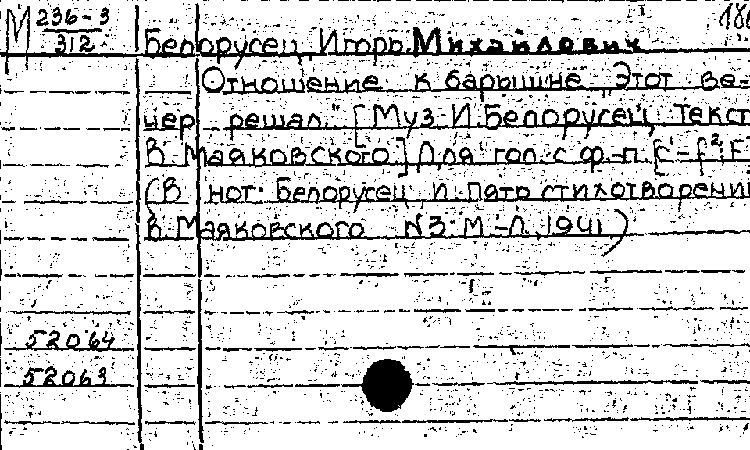 М 236-3
312
Белорусец, Игорь Михайлович
Отношение к барышне „Этот ве-
чер решал." [Муз. И. Белорусец, Текст
В. Маяковского.] Для гол. с ф.-п.
(В нот: Белорусец, И. Пять стихотворений
В. Маяковского N3. М.-Л., 1941)
52064
52063